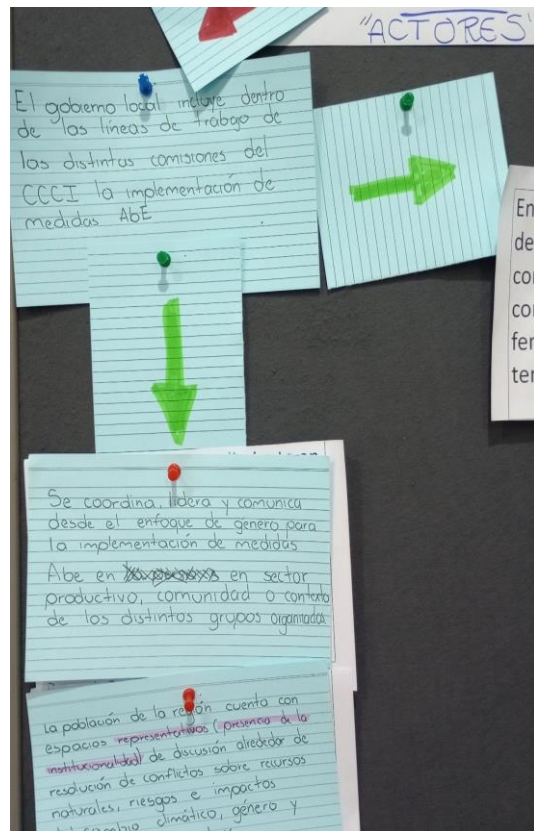 "ACTORES"
El gobierno local incluye dentro
de las líneas de trabajo de
las distintas comisiones del
CCCI la implementación de
medidas AbE
En
de
co
co
fer
ter
Se coordina, lidera y comunica
desde el enfoque de género para
la implementación de medidas
Abe en en sector
productivo, comunidad o contexto
de los distintos grupos organizados
La población de la región cuenta con
espacios representativos (presencia de la
institucionalidad) de discusión alrededor de
resolución de conflictos sobre recursos
naturales, riesgos e impactos
cambio climático, género y